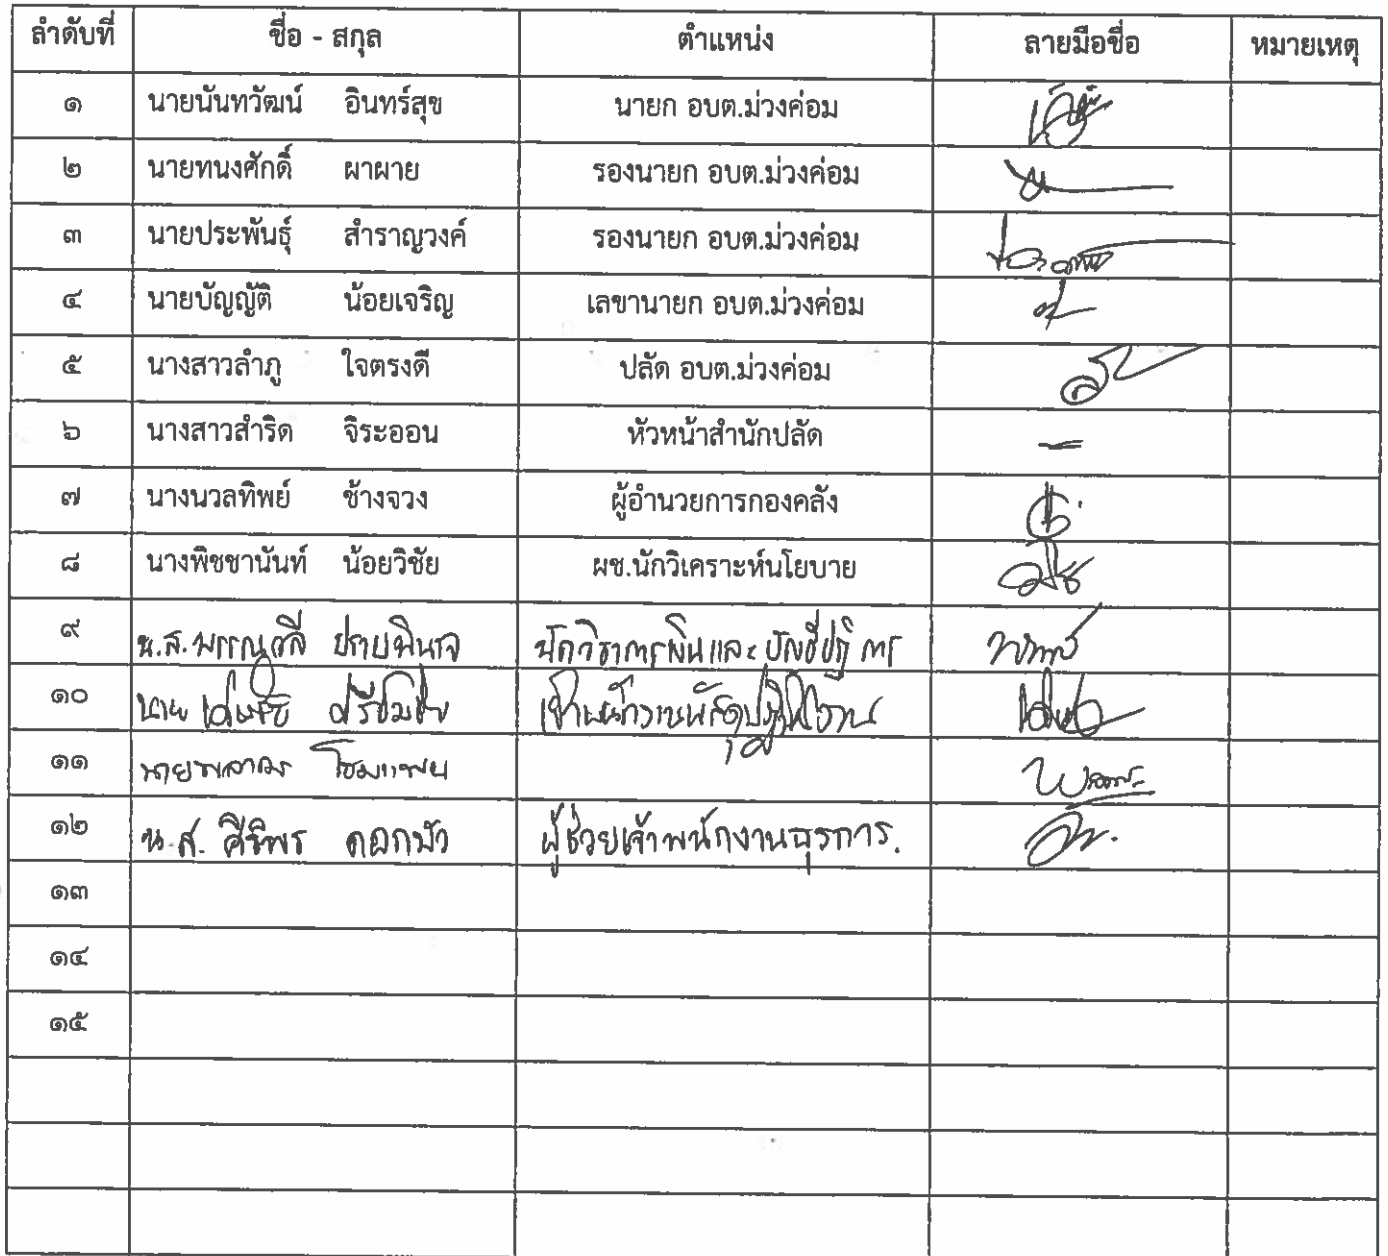 ลำดับที่ ชื่อ - สกุล ตำแหน่ง ลายมือชื่อ หมายเหตุ
๑ นายนันทวัฒน์ อินทร์สุข นายก อบต.ม่วงค่อม
๒ นายทนงศักดิ์ ผาผาย รองนายก อบต.ม่วงค่อม
๓ นายประพันธุ์ สำราญวงค์ รองนายก อบต.ม่วงค่อม
๔ นายบัญญัติ น้อยเจริญ เลขานายก อบต.ม่วงค่อม
๕ นางสาวลำภู ใจตรงดี ปลัด อบต.ม่วงค่อม
๖ นางสาวสำริด จิระออน หัวหน้าสำนักปลัด
๗ นางนวลทิพย์ ช้างจวง ผู้อำนวยการกองคลัง
๘ นางพิชชานันท์ น้อยวิชัย ผช.นักวิเคราะห์นโยบาย
๙ น.ส.
๑๐ นาย
๑๑ นาย
๑๒ น.ส. ศิริพร ดอกบัว ผู้ช่วยเจ้าพนักงานธุรการ.
๑๓
๑๔
๑๕